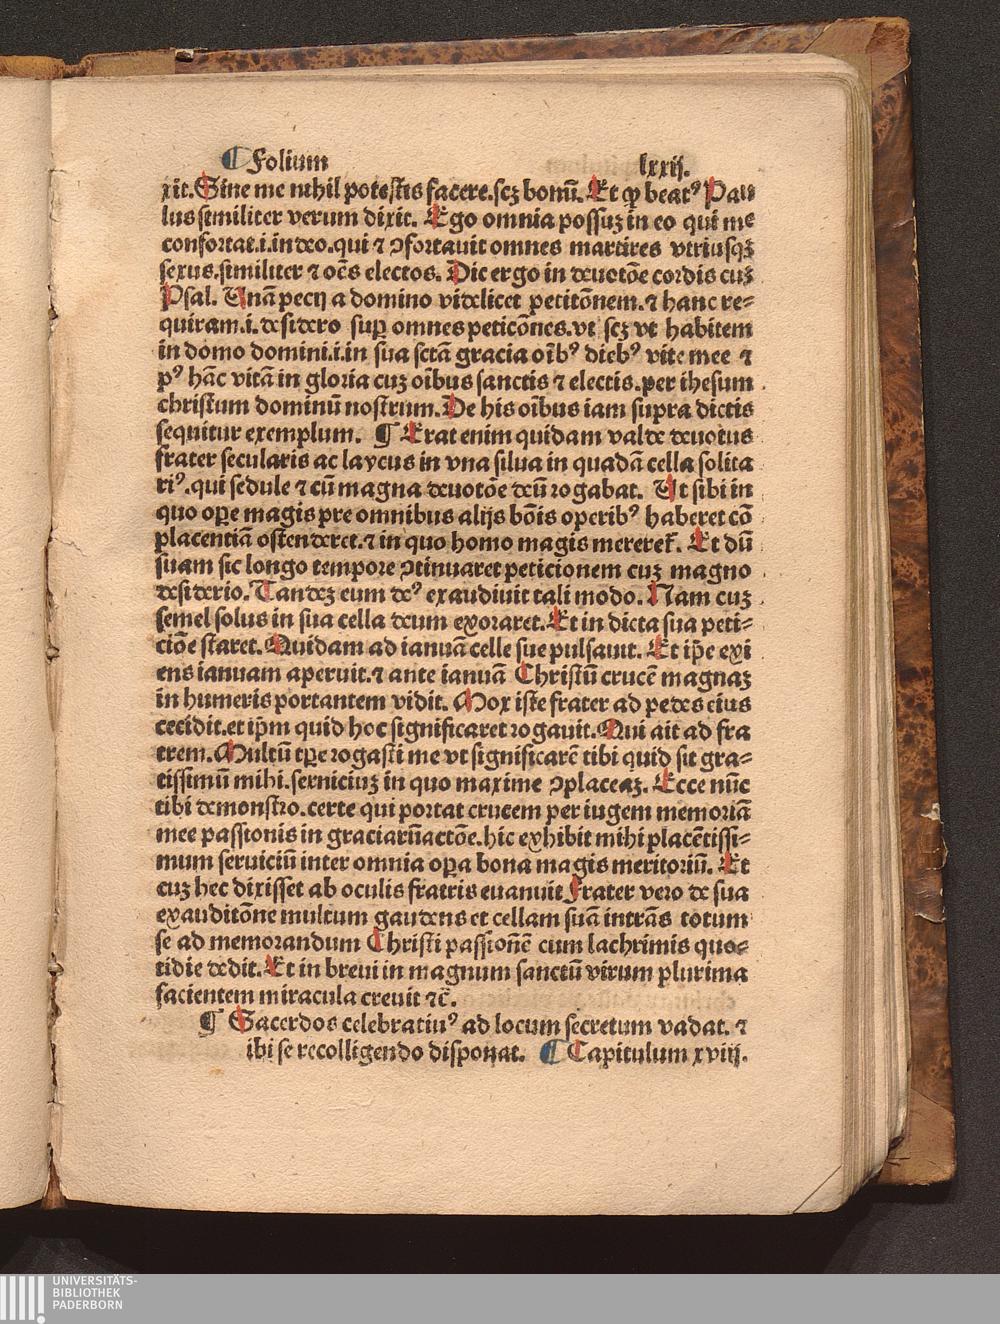 ¶ Folium lxxij.
xit. Sine me nihil potestis facere. scz bonū. Et ꝙ beatꝰ Pau
lus similiter verum dixit. Ego omnia possuz in eo qui me
confortat .i. in deo. qui ⁊ ꝯfortauit omnes martires vtriusqꝫ
sexus. similiter ⁊ oēs electos. Dic ergo in deuotōe cordis cuꝫ
Psal. Unā pecij a domino videlicet petitōnem. ⁊ hanc re⸗
quiram .i. desidero suꝑ omnes peticōnes. vt scꝫ vt habitem
in domo domini .i. in sua sctā gracia oībꝰ diebꝰ vite mee ⁊
pꝰ hāc vitā in gloria cuꝫ oībus sanctis ⁊ electis. per ihesum
christum dominū nostrum. De his oībus iam supra dictis
sequitur exemplum. ¶ Erat enim quidam valde deuotus
frater secularis ac laycus in vna silua in quadā cella solita
riꝰ. qui sedule ⁊ cū magna deuotōe deū rogabat. Ut sibi in
quo oꝑe magis pre omnibus alijs bōis operibꝰ haberet cō
placentiā ostenderet. ⁊ in quo homo magis mereret᷑. Et dū
suam sic longo tempore ꝯtinuaret peticionem cuꝫ magno
desiderio. Tandeꝫ eum deꝰ exaudiuit tali modo. Nam cuꝫ
semel solus in sua cella deum exoraret. Et in dicta sua peti⸗
ciōe staret. Quidam ad ianuā celle sue pulsauit. Et ip̄e exi
ens ianuam aperuit. ⁊ ante ianuā Christū crucē magnaꝫ
in humeris portantem vidit. Mox iste frater ad pedes eius
cecidit. et ip̄m quid hoc significaret rogauit. Qui ait ad fra
trem. Multū tꝑe rogasti me vt significarē tibi quid sit gra⸗
tissimū mihi. serniciuꝫ in quo maxime ꝯplaceaꝫ. Ecce nūc
tibi demonstro. certe qui portat crucem per iugem memoriā
mee passionis in graciarū actōe. hic exhibit mihi placētissi⸗
mum seruiciū inter omnia oꝑa bona magis meritoriū. Et
cuꝫ hec dixisset ab oculis fratris euanuit Frater vero de sua
exauditōne multum gaudens et cellam suā intrās totum
se ad memorandum Christi passionē cum lachrimis quo⸗
tidie dedit. Et in breui in magnum sanctū virum plurima
facientem miracula creuit ⁊c̄.
¶ Sacerdos celebratiuꝰ ad locum secretum vadat. ⁊
ibi se recolligendo disponat. ¶ Capitulum xviij.
UNIVERSITÄTS-
BIBLIOTHEK
PADERBORN